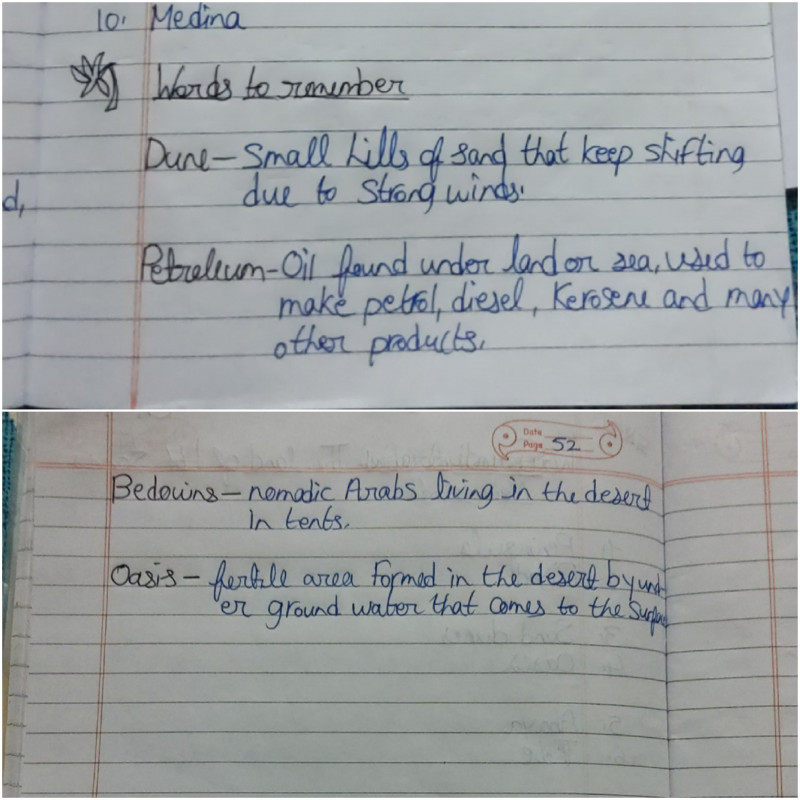 10. Medina
Words to remember
Dune - Small hills of sand that keep shifting
due to strong winds.
d,
Petroleum - Oil found under land or sea, used to
make petrol, diesel, Kerosene and many
other products.
Date
Page 52
Bedouins - nomadic Arabs living in the desert
In tents.
Oasis - fertile area formed in the desert by und-
er ground water that comes to the Surface